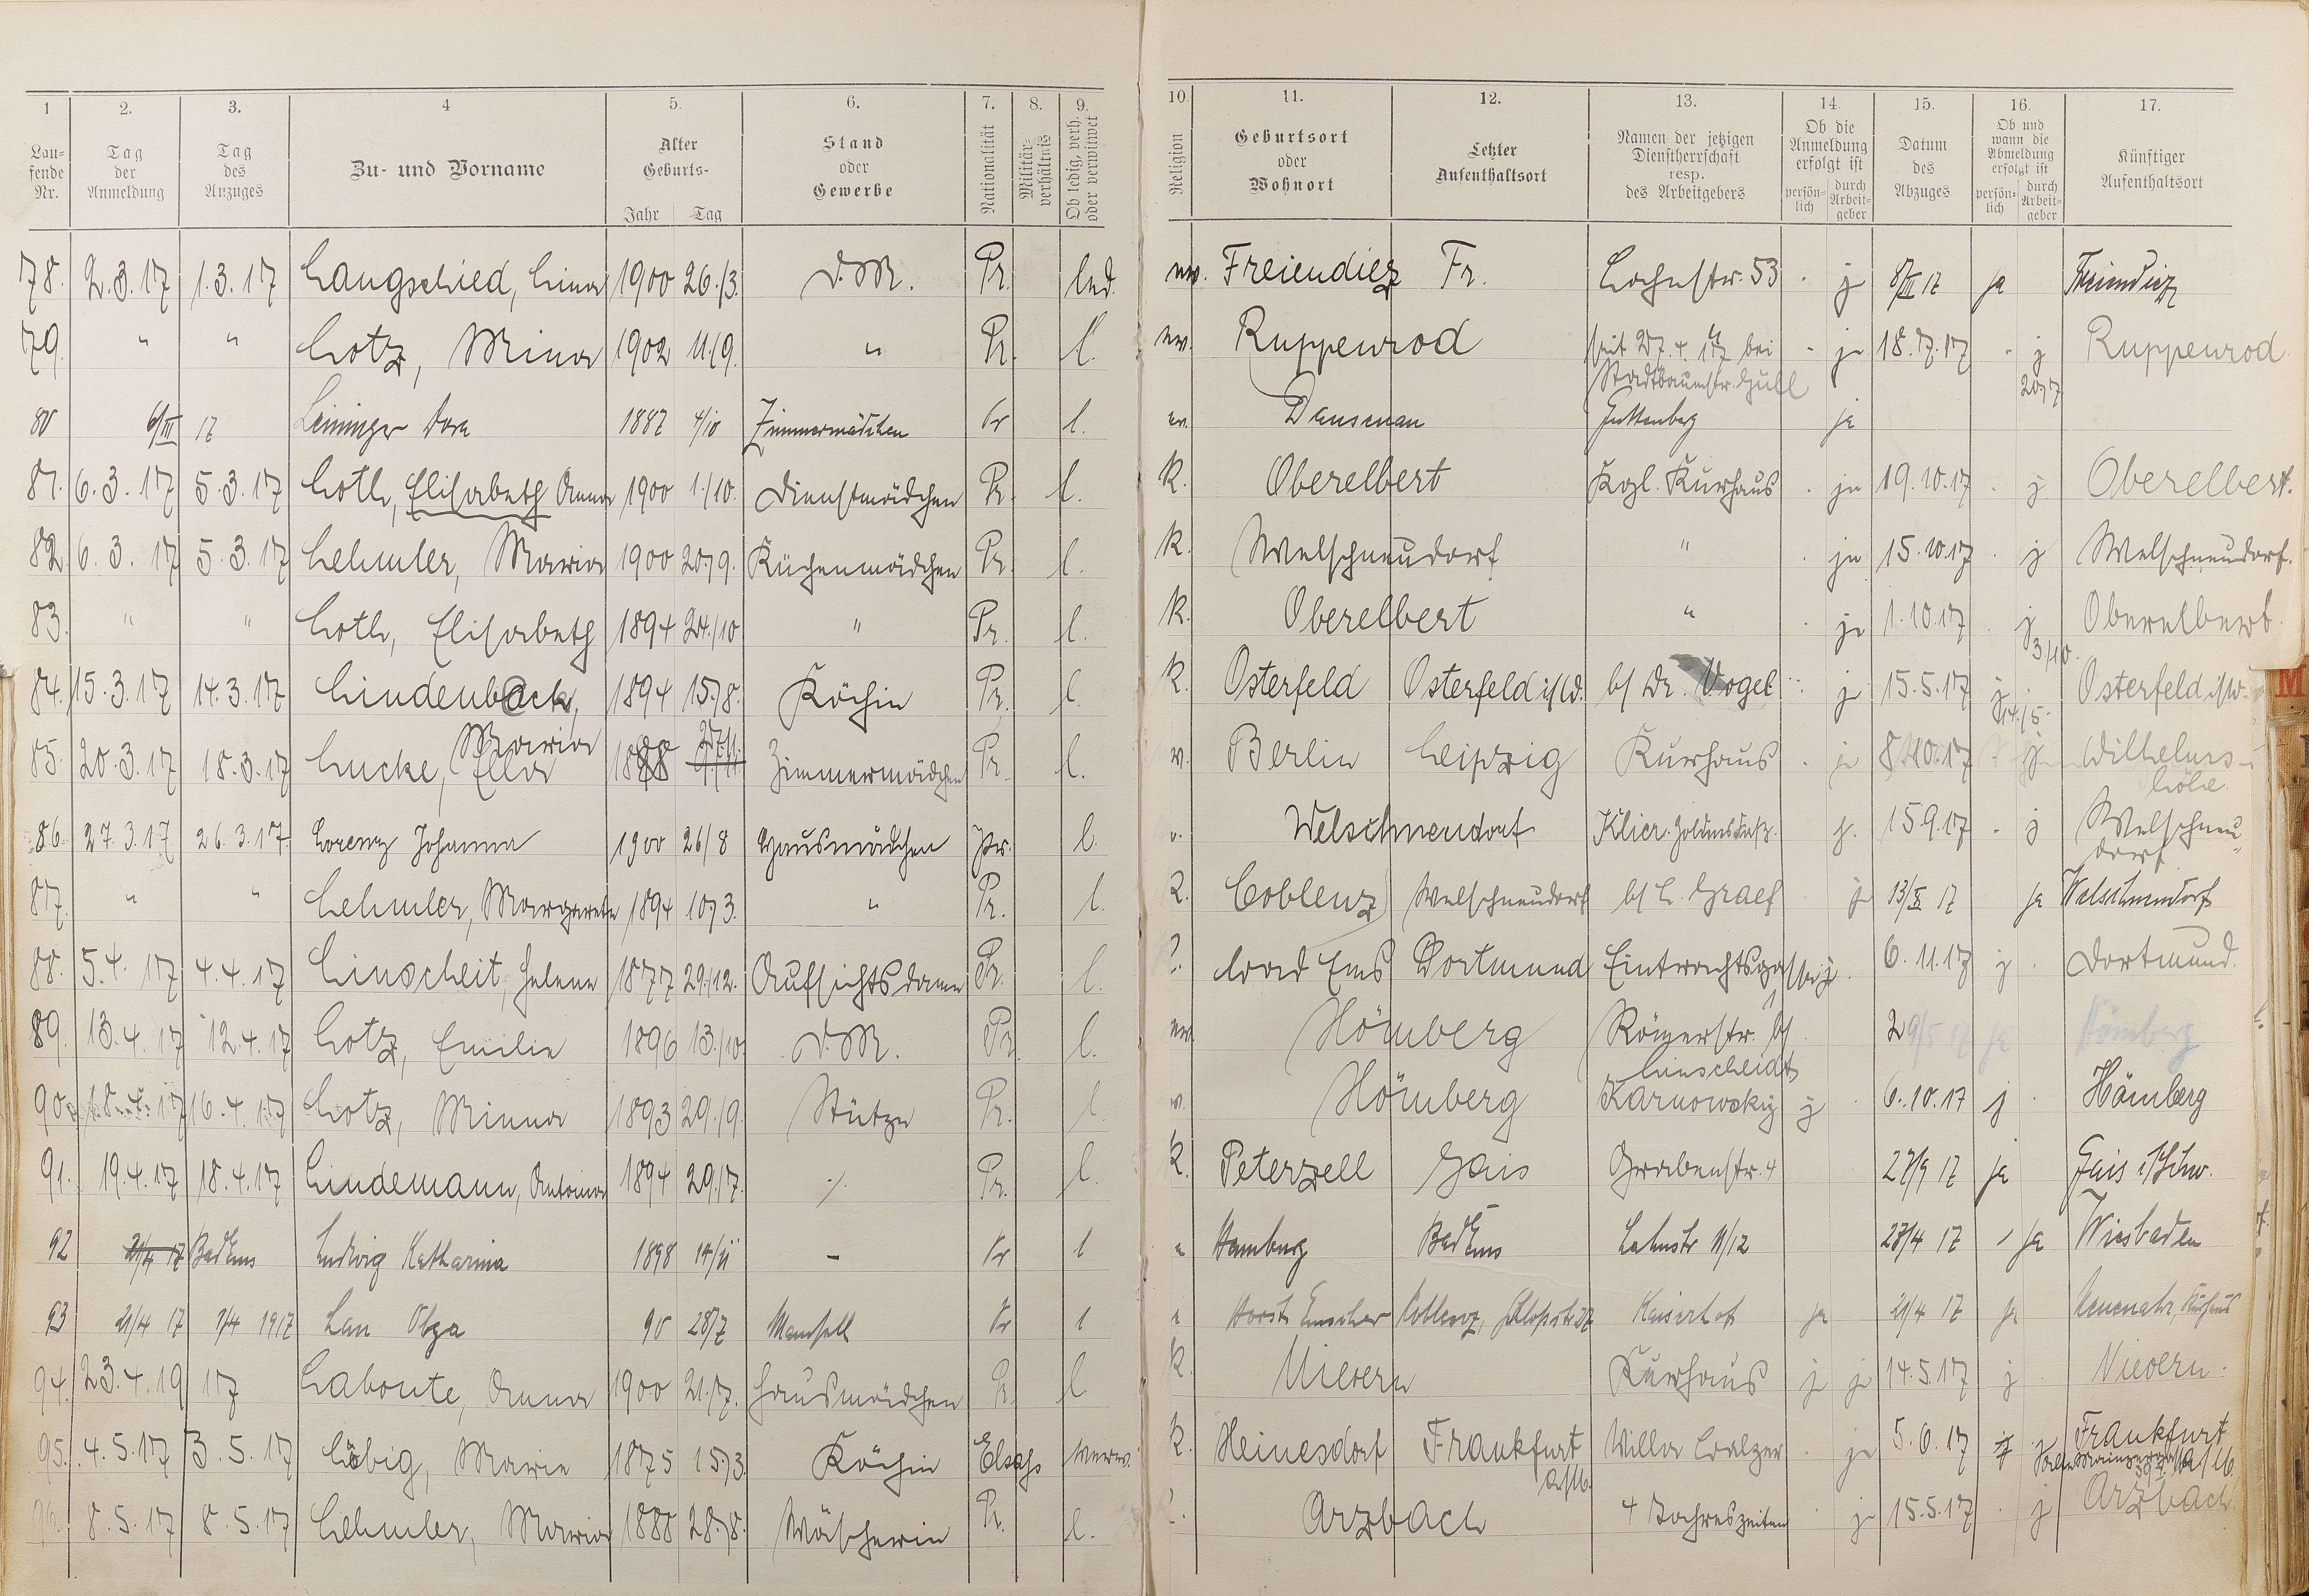 1 2. 3. 4 5. 6. 7. 8. 9. 10. 11. 12. 13. 14. 15. 16. 17.
Lau-fende Nr. Tag der Anmeldung Tag des Anzuges Zu- und Vorname Alter Geburts- Jahr Tag Stand oder Gewerbe Nationalität Militär-verhältnis Ob ledig, verh. oder verwitwet Religion Geburtsort oder Wohnort Letzter Aufenthaltsort Namen der jetzigen Dienstherrschaft resp. des Arbeitgebers Ob die Anmeldung erfolgt ist persön-lich durch Arbeit-geber Datum des Abzuges Ob und wann die Abmeldung erfolgt ist persön-lich durch Arbeit-geber Künftiger Aufenthaltsort
78. 2.3.17 1.3.17 Langschied, Lina 1900 26./3. D.M. Pr. led. ev. Freiendiez Fr. Lahnstr. 53 j 8/III 17 ja Freiendiez
79. " " Lotz, Mina 1902 11./9. " Pr. l. ev. Ruppenrod seit 27.4.17 bei Stadtbaumstr. Gull ja 18.7.17 j 20/7 Ruppenrod
80 6/III 17 Leininger Dora 1887 4/10 Zimmermädchen Pr l. ev. Dausenau Guttenberg ja
81. 6.3.17 5.3.17 Loth, Elisabeth Anna 1900 1./10. Dienstmädchen Pr. l. K. Oberelbert Kgl. Kurhaus ja 19.10.17 j Oberelbert.
82 6.3.17 5.3.17 Lehmler, Maria 1900 20./9. Küchenmädchen Pr. l. K. Welschneudorf " ja 15.10.17 j Welschneudorf.
83. " " Loth, Elisabeth 1894 24./10 " Pr. l. K. Oberelbert " ja 1.10.17 j 3/10. Oberelbert.
84. 15.3.17 14.3.17 Lindenback, Maria 1894 15./8. Köchin Pr. l. K. Osterfeld Osterfeld i/W. b/ Dr. Vogel j 15.5.17 j 14./5. Osterfeld i/W.
85. 20.3.17 18.3.17 Lucke, Ella Zimmermädchen Pr. l. Berlin Leipzig Kurhaus ja 8.10.17 j Wilhelms-höhe.
86. 27.3.17 26.3.17. Lorenz Johanna 1900 26/8 Hausmädchen Pr. l. Welschneudorf Klier. j. 15.9.17 j Welschneu-dorf
87. " " Lehmler, Margarete 1894 10./3. " Pr. l. K. Coblenz Welschneudorf b/ L. Graef j 13/X 17 ja Welschneudorf
88. 5.4.17 4.4.17 Linscheit, Helene 1877 29./12. Aufsichtsdame Pr. l. Bad Ems Dortmund Eintrachtsgasse j 6.11.17 j Dortmund.
89. 13.4.17 12.4.17 Lotz, Emilie 1896 13./10. D.M. Pr l. ev. Hömberg Römerstr. b/ Linscheidt 29/5 17 ja Hömberg
90. 18.4.17 16.4.17 Lotz, Minna 1893 29./9. Stütze Pr. l Hömberg Karnowsky j 6.10.17 j Hömberg
91. 19.4.17 18.4.17 Lindemann, Antonie 1894 29./7. ./. Pr. l. K. Peterzell Gais Grabenstr. 4 27/9 17 ja Gais i/Schw.
92 21/4 17 Bad Ems Ludwig Katharina 1898 14/11 - Pr l Hamburg Bad Ems Lahnstr 11/12 23/4 17 ja Wiesbaden
93 21/4 17 1917 Lau Olga 90 28/7 Mamsell Pr l Horst Emscher Coblenz, Schloßstr. Kaiserhof ja 21/4 17 ja Neuenahr, Kurhaus
94. 23.4.19 17 Labonte, Anna 1900 21./7. Hausmädchen Pr. l K. Nievern Kurhaus j j 14.5.17 j Nievern.
95. 4.5.17 3.5.17 Löbig, Marie 1875 15./3. Köchin Elsaß verw. K. Heinesdorf Frankfurt a/M. Villa Balzer ja 5.6.17 j Frankfurt a/M.
96. 8.5.17 8.5.17 Lehmler, Maria 1888 28./8. Wäscherin Pr. l. Arzbach 4 Jahreszeiten j 15.5.17 j Arzbach